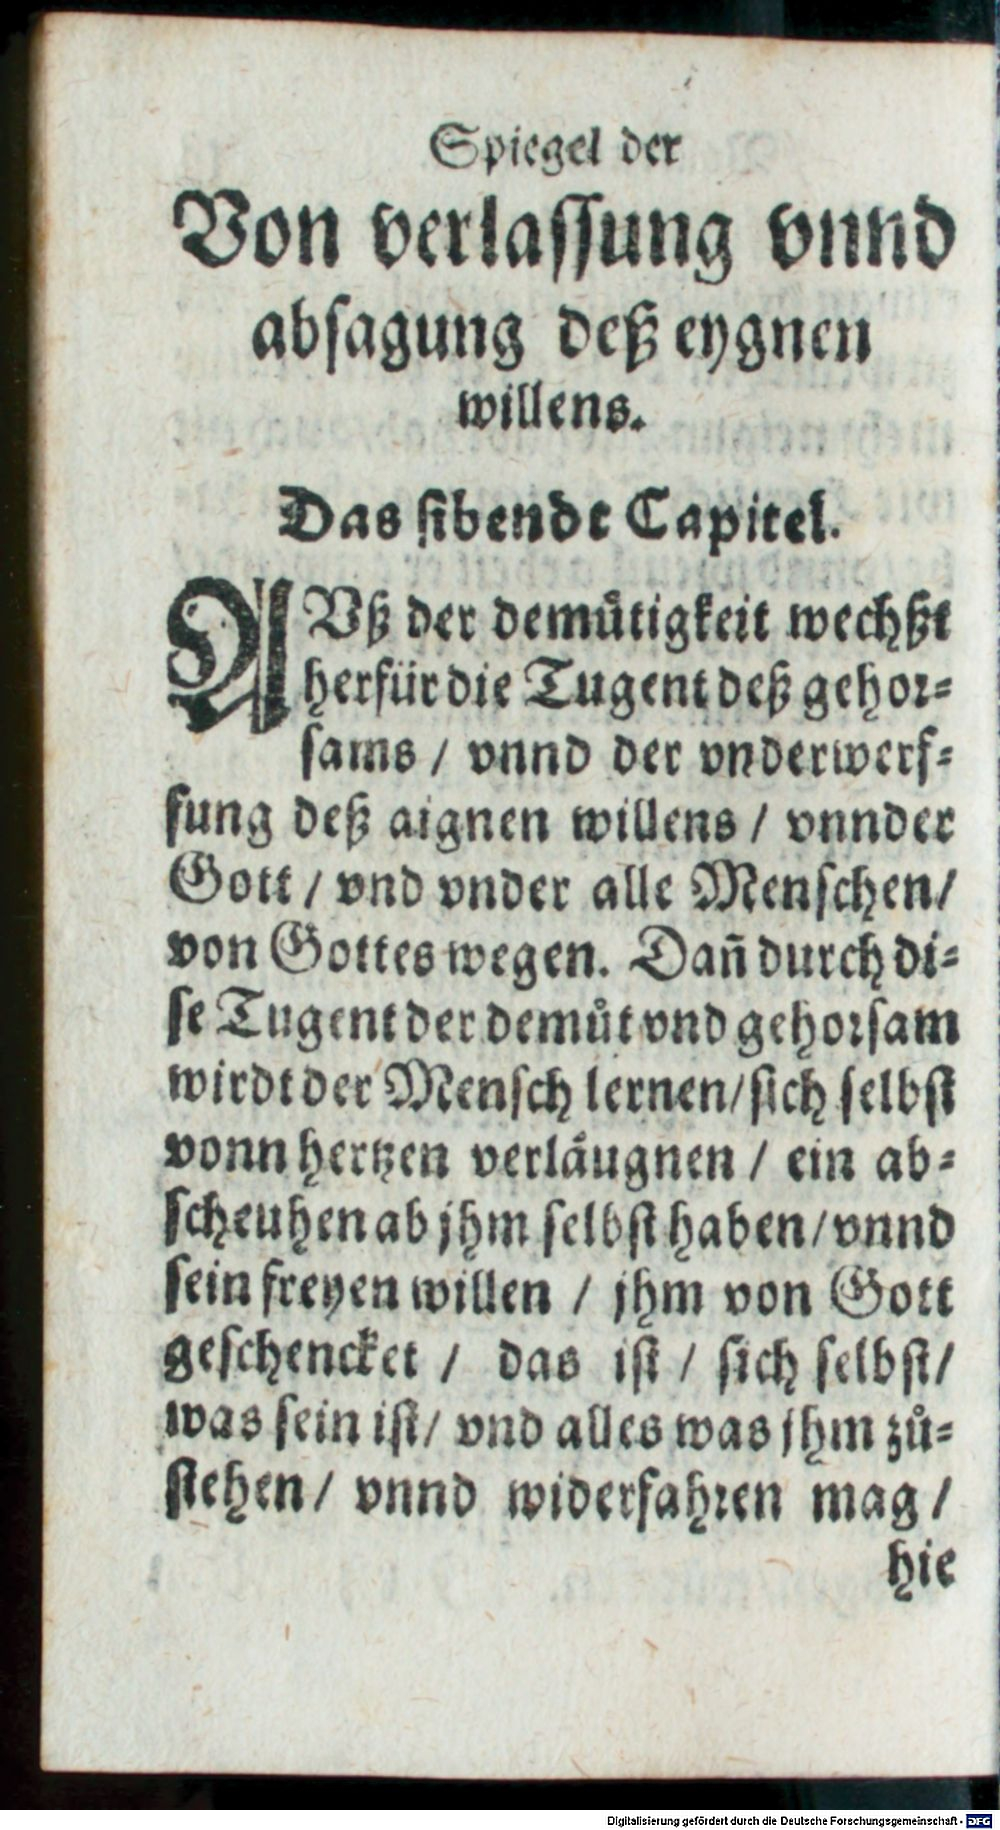 Spiegel der
Von verlassung vnnd
absagung deß eygnen
willens.
Das sibendt Capitel.
AVß der demůtigkeit wechßt
herfür die Tugent deß gehor⸗
sams / vnnd der vnderwerf⸗
fung deß aignen willens / vnnder
Gott / vnd vnder alle Menschen/
von Gottes wegen. Dañ durch di⸗
se Tugent der demůt vnd gehorsam
wirdt der Mensch lernen/sich selbst
vonn hertzen verläugnen / ein ab⸗
scheuhen ab jhm selbst haben/vnnd
sein freyen willen / jhm von Gott
geschencket / das ist / sich selbst/
was sein ist/ vnd alles was jhm zů⸗
stehen/ vnnd widerfahren mag /
hie
Digitalisierung gefördert durch die Deutsche Forschungsgemeinschaft - DFG